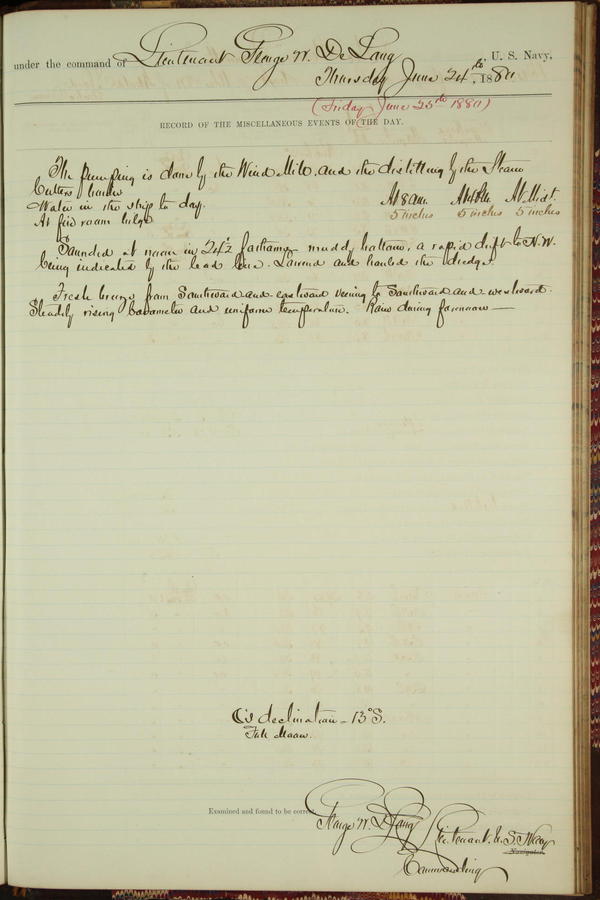 under the command of Lieutenant George W. De Long, U. S. Navy,
Thursday June 24th, 1880
(Friday June 25th 1880)
RECORD OF THE MISCELLANEOUS EVENTS OF THE DAY.
The pumping is done by the Wind Mill, and the distilling by the Steam
Cutters boiler
Water in the ship to day. At 8 am. At 4 PM. At Midt.
At fire room bilge 5 inches 5 inches 5 inches
Sounded at noon in 24½ fathoms - muddy bottom, a rapid drift to N.W.
being indicated by the lead line. Lowered and hauled the dredge.
Fresh breeze from Southward and eastward veering to Southward and westward.
Steadily rising barometer and uniform temperature. Rain during forenoon —
☾'s declination - 13° S.
Full Moon.
Examined and found to be correct.
George W. De Long Lieutenant U.S. Navy
Navigator.
Commanding